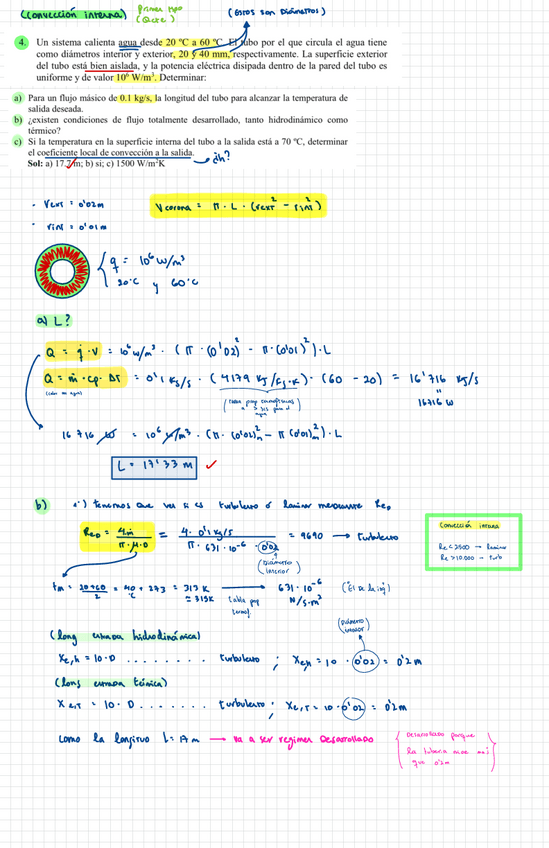 (Convección interna) Primer tipo (Qcte)
(Estos son Diámetros)
4. Un sistema calienta agua desde 20 ºC a 60 ºC. El tubo por el que circula el agua tiene
como diámetros interior y exterior, 20 y 40 mm, respectivamente. La superficie exterior
del tubo está bien aislada, y la potencia eléctrica disipada dentro de la pared del tubo es
uniforme y de valor 10⁶ W/m³. Determinar:
a) Para un flujo másico de 0.1 kg/s, la longitud del tubo para alcanzar la temperatura de
salida deseada.
b) ¿existen condiciones de flujo totalmente desarrollado, tanto hidrodinámico como
térmico?
c) Si la temperatura en la superficie interna del tubo a la salida está a 70 ºC, determinar
el coeficiente local de convección a la salida. → ¿h?
Sol: a) 17.7 m; b) si; c) 1500 W/m²K
· rext = 0'02m
· rint = 0'01m
Vcorona = π · L · (rext² - rint²)
q̇ = 10⁶ W/m³
20°C y 60°C
a) L?
Q = q̇ · V = 10⁶ W/m³ · (π · (0'02)² - π · (0'01)²) · L
Q = ṁ · cp · ΔT = 0'1 kg/s · (4179 kJ/kg·K) · (60 - 20) = 16'716 kJ/s
=
16716 W
16716 W = 10⁶ W/m³ · (π · (0'02)²m - π (0'01)²m) · L
L = 17'33 m ✓
b) 1º) tenemos que ver si es turbulento o laminar mediante ReD
ReD = 4ṁ / π · μ · D = 4 · 0'1 kg/s / π · 631 · 10⁻⁶ · 0'02 = 9690 → turbulento
(Diámetro interior)
Convección interna
Re < 2300 → laminar
Re > 10.000 → turb
tm = 20+60 / 2 = 40 °C + 273 = 313 K ≈ 315K → 631 · 10⁻⁶ N/s·m²
tabla prop termof.
(long entrada hidrodinámica)
(Diámetro interior)
Xe,h = 10 · D ........ turbulento ; Xe,h = 10 · 0'02 = 0'2 m
(long entrada térmica)
Xe,T = 10 · D ........ turbulento ; Xe,T = 10 · 0'02 = 0'2m
Como la longitud L = 17 m → va a ser regimen Desarrollado
Desarrollado porque
la tuberia mide más
que 0'2m